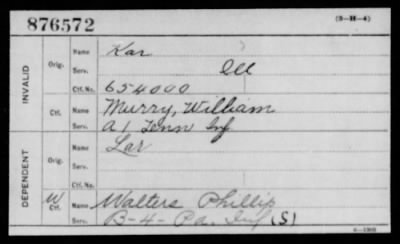 876572
(3-H-4)
INVALID
Orig.
Name Kar
Serv. Ill
Ctf. No. 654000
Ctf.
Name Murry, William
Serv. A 1 Tenn Inf
DEPENDENT
Orig.
Name Lar
Serv.
Ctf. No.
W Ctf.
Name Walters Phillip
Serv. B-4-Pa. Inf (S)